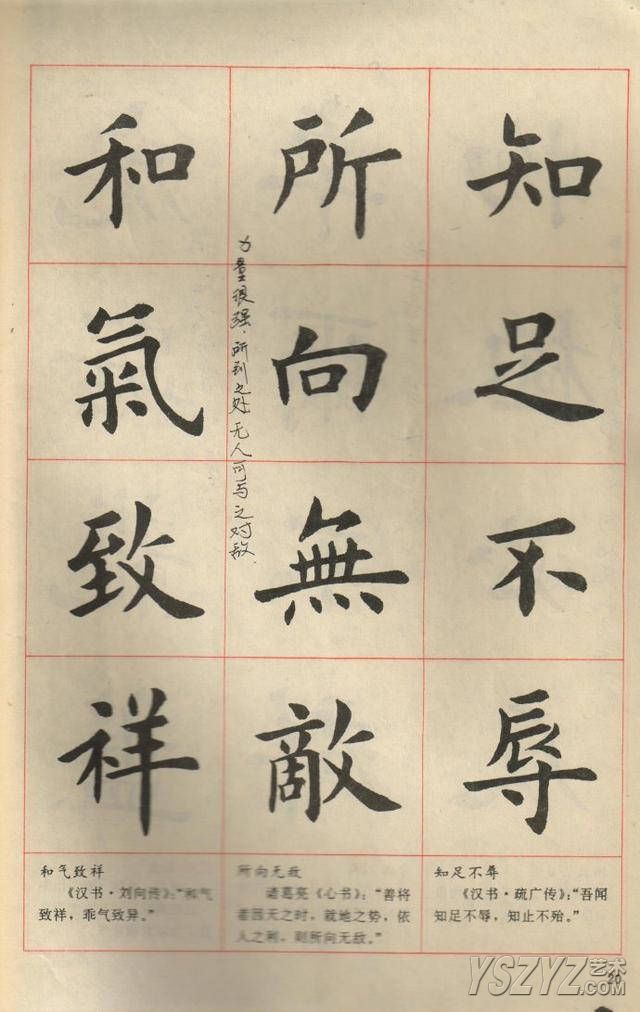 知足不辱
所向無敵
和氣致祥
力量很强，所到之处，无人可与之对敌。
和气致祥
《汉书·刘向传》：“和气
致祥，乖气致异。”
所向无敌
诸葛亮《心书》：“善将
者因天之时，就地之势，依
人之利，则所向无敌。”
知足不辱
《汉书·疏广传》：“吾闻
知足不辱，知止不殆。”
20
YSZYZ艺术.COM